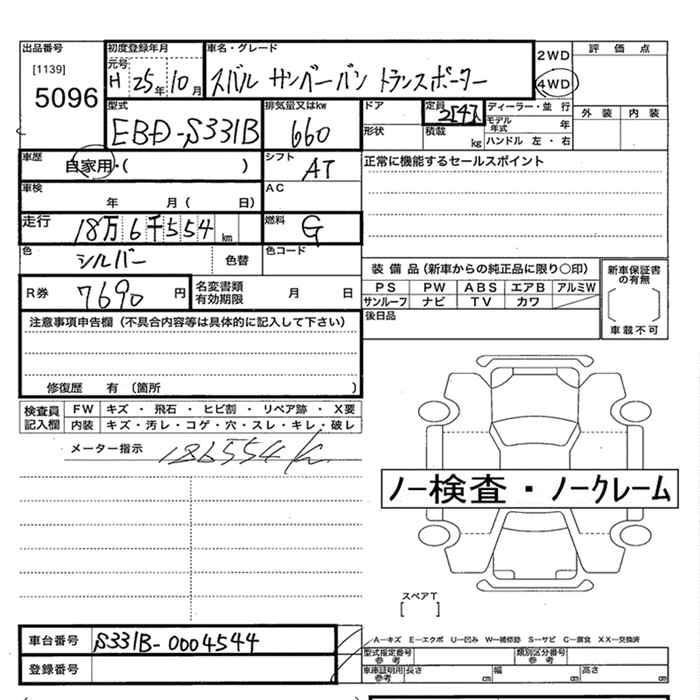 出品番号
[1139]
5096
初度登録年月
元号
H 25年 10月
車名・グレード
スバル サンバーバン トランスポーター
2WD
4WD
評価点
外装 内装
型式
EBD-S331B
排気量又はkw
660
ドア
形状
定員
積載 kg
ディーラー・並行
モデル年式 年
ハンドル 左・右
車歴
自家用・( )
シフト
AT
正常に機能するセールスポイント
車検
年 月( 日)
AC
走行
18万6千554 km
燃料
G
色
シルバー
色替
色コード
R券
7690 円
名変書類有効期限
月 日
装備品(新車からの純正品に限り○印)
PS PW ABS エアB アルミW
サンルーフ ナビ TV カワ
新車保証書の有無
車載不可
後日品
注意事項申告欄(不具合内容等は具体的に記入して下さい)
修復歴 有(箇所 )
検査員記入欄
FW キズ・飛石・ヒビ割・リペア跡・X要
内装 キズ・汚レ・コゲ・穴・スレ・キレ・破レ
メーター指示
186554K
ノー検査・ノークレーム
スペアT
[ ]
車台番号
S331B-0004544
登録番号
A−キズ E−エクボ U−凹み W−補修跡 S−サビ C−腐食 XX−交換済
型式指定番号参考
類別区分番号参考
車庫証明用参考
長さ cm
幅 cm
高さ cm